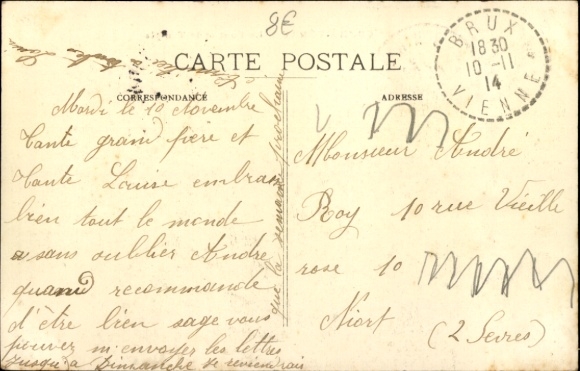 8€
CARTE POSTALE
CORRESPONDANCE
ADRESSE
BRUX
18 30
10 - 11
14
VIENNE
Mardi le 10 Novembre
Tante grand père et
Tante Louise embrass
bien tout le monde
sans oublier André
quand recommande
d'être bien sage vous
pouvez m'envoyer les lettres
jusqu'à Dimanche je reviendrai
que la semaine prochaine
Monsieur André
Roy 10 rue Vieille
rose 10
Niort
(2 Sevres)